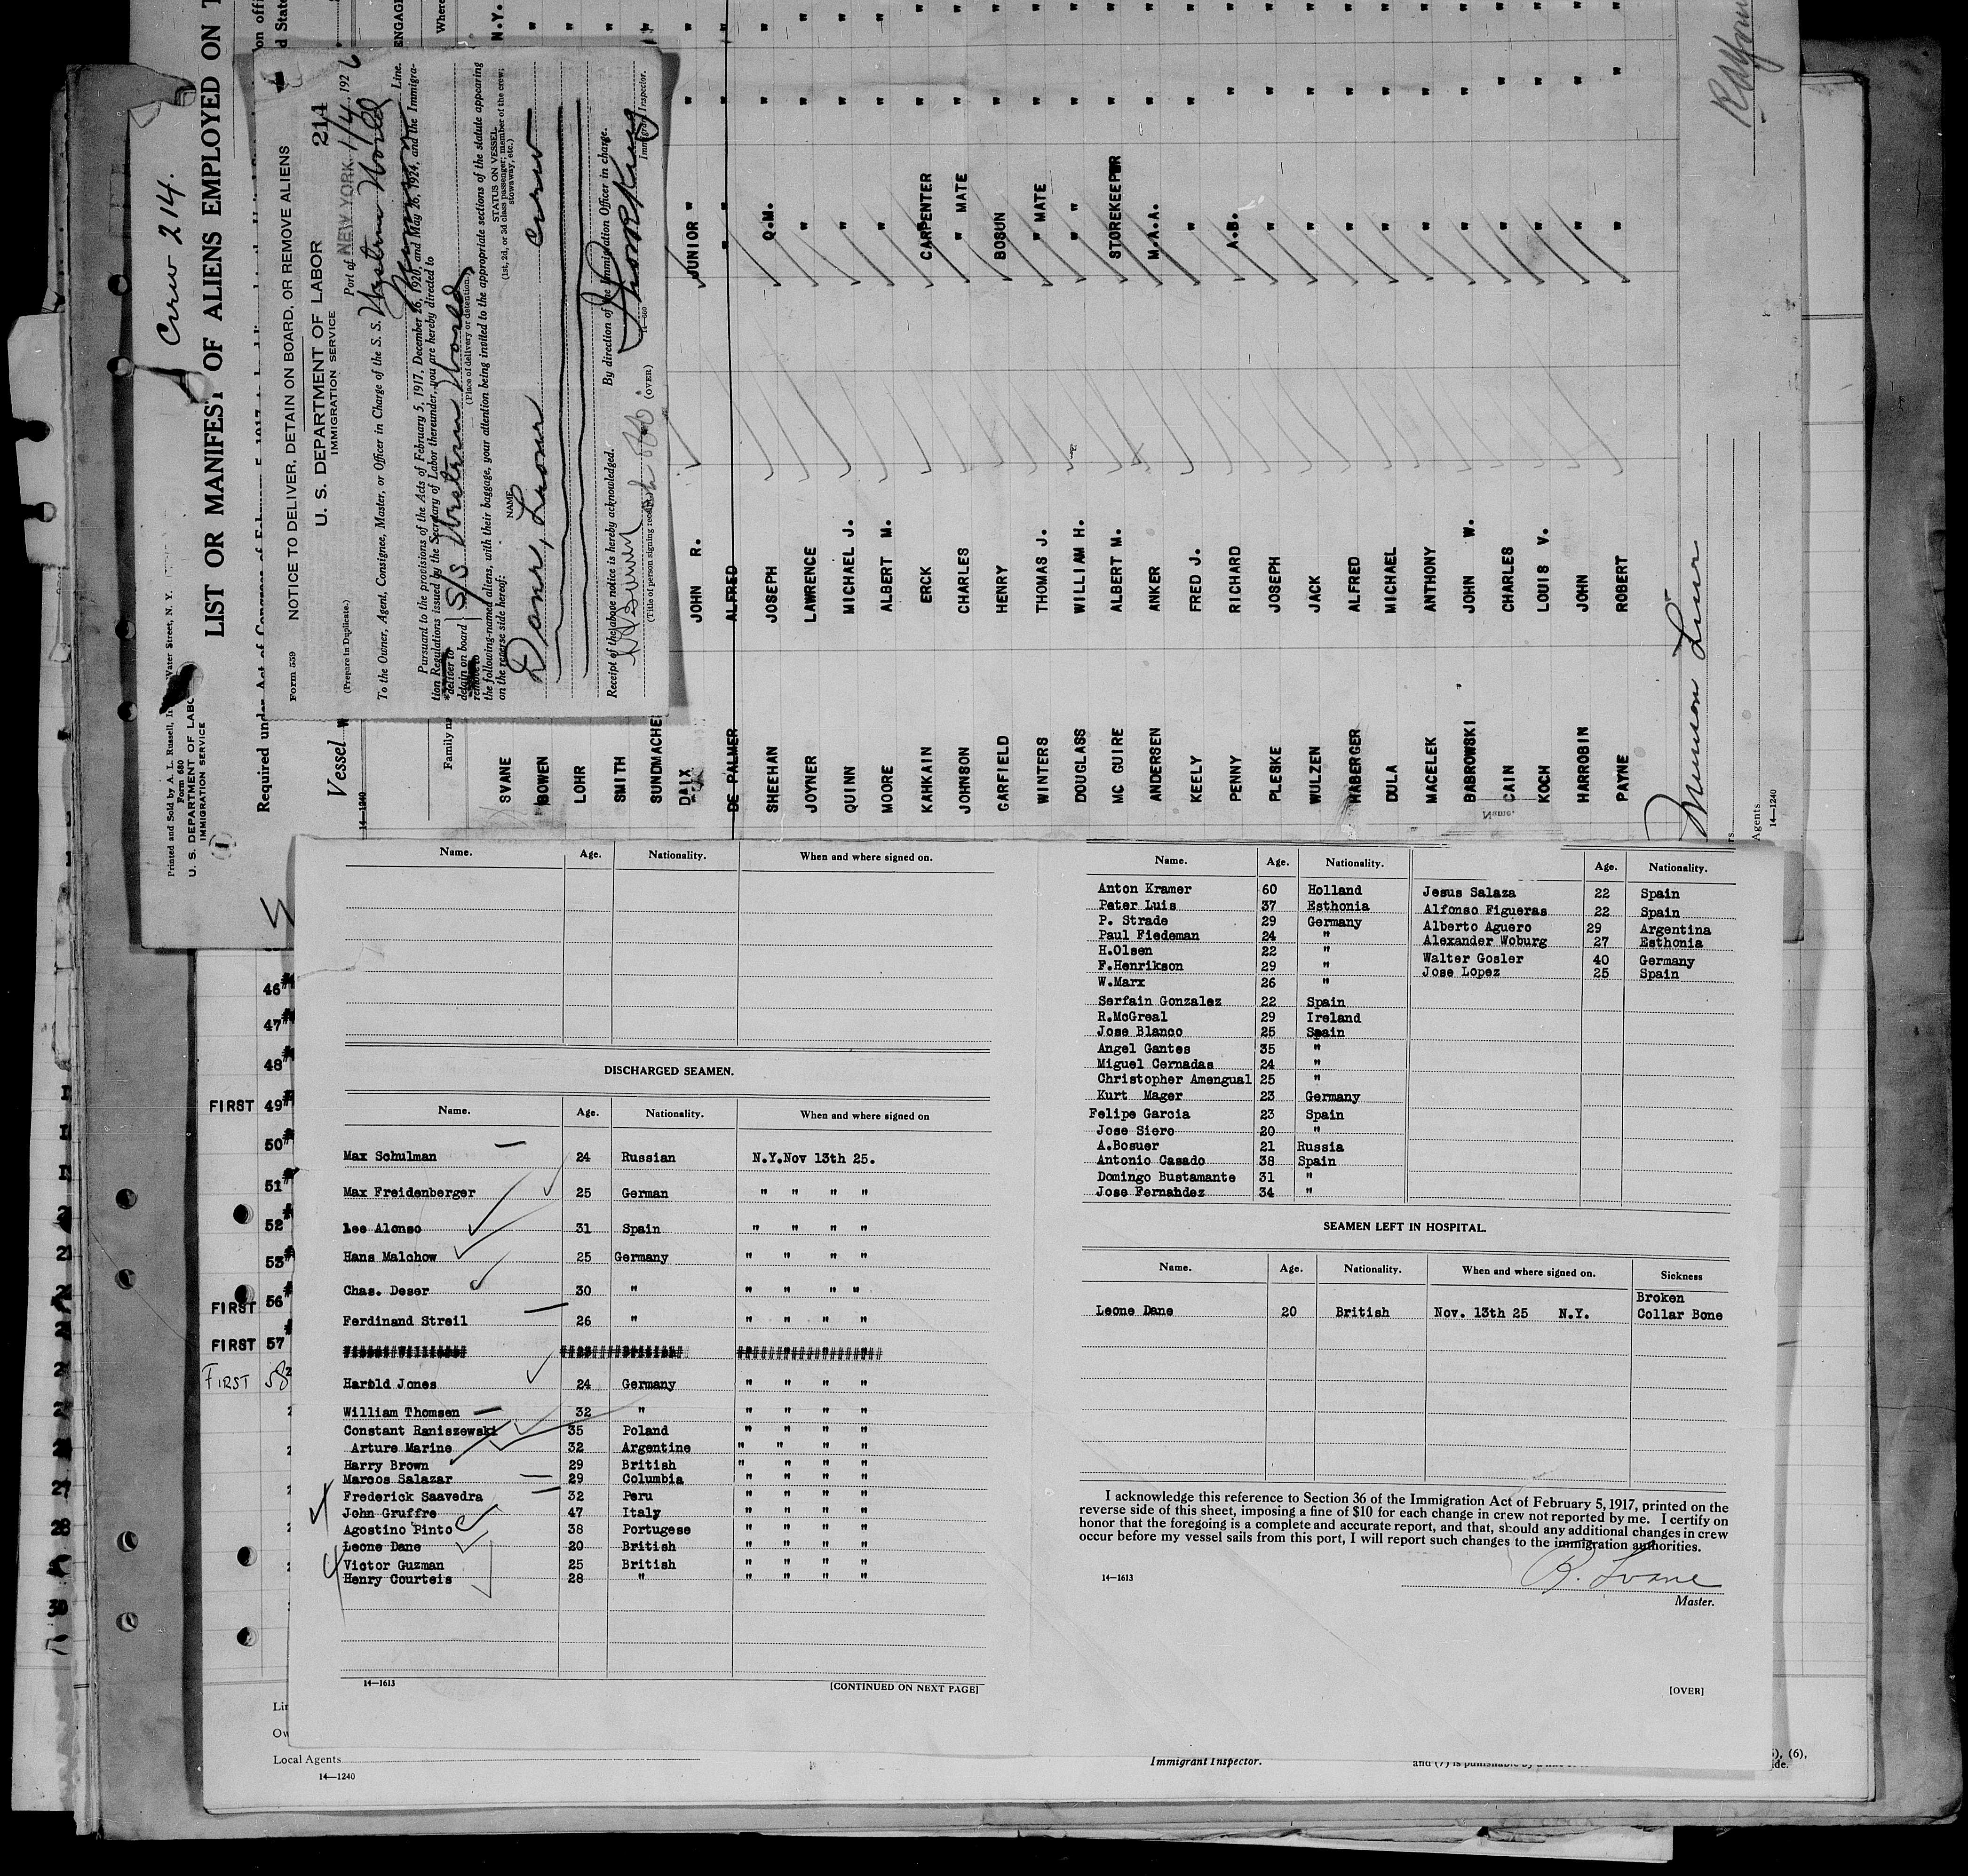 Crew 214.
Printed and Sold by A. L. Russell, Water Street, N. Y.
Form 680
U. S. DEPARTMENT OF LABOR
IMMIGRATION SERVICE
LIST OR MANIFEST OF ALIENS EMPLOYED ON
Required under Act of Congress of February 5, 1917
Vessel
14—1240
Family
Form 559
NOTICE TO DELIVER, DETAIN ON BOARD, OR REMOVE ALIENS
U. S. DEPARTMENT OF LABOR
214
IMMIGRATION SERVICE
(Prepare in Duplicate.)
Port of NEW YORK 1/4, 1926
To the Owner, Agent, Consignee, Master, or Officer in Charge of the S. S. Western World
Munson Line.
Pursuant to the provisions of the Acts of February 5, 1917, December 26, 1920, and May 26, 1924, and the Immigra-
tion Regulations issued by the Secretary of Labor thereunder, you are hereby directed to
*deliver to
detain on board
remove to
S/S Western World
(Place of delivery or detention.)
the following-named aliens, with their baggage, your attention being invited to the appropriate sections of the statute appearing
on the reverse side hereof:
NAME
STATUS ON VESSEL
(1st, 2d, or 3d class passenger; member of the crew;
stowaway, etc.)
Dane, Leone Crew
Receipt of the above notice is hereby acknowledged.
By direction of the Immigration Officer in charge.
(Title of person signing receipt)
Immigrant Inspector.
(OVER)
14—660
N.Y.
SVANE
BOWEN
LOHR
SMITH
SUNDMACHE
DAIX JOHN R. JUNIOR "
DE PALMER ALFRED " "
SHEEHAN JOSEPH Q.M.
JOYNER LAWRENCE "
QUINN MICHAEL J. "
MOORE ALBERT M. "
KAHKAIN ERCK CARPENTER
JOHNSON CHARLES " MATE
GARFIELD HENRY BOSUN
WINTERS THOMAS J. " MATE
DOUGLASS WILLIAM H. " "
MC GUIRE ALBERT M. STOREKEEPER
ANDERSEN ANKER M.A.A.
KEELY FRED J. "
PENNY RICHARD A.B.
PLESKE JOSEPH "
WULZEN JACK "
HABERGER ALFRED "
DULA MICHAEL "
MACELEK ANTHONY "
BABROWSKI JOHN W. "
CAIN CHARLES "
KOCH LOUIS V. "
HARROBIN JOHN "
PAYNE ROBERT "
Munson Line
Agents
14—1240
46
47
48
FIRST 49
50
51
52
53
FIRST 56
FIRST 57
FIRST 58
Name. Age. Nationality. When and where signed on.
DISCHARGED SEAMEN.
Name. Age. Nationality. When and where signed on
Max Schulman 24 Russian N.Y.Nov 13th 25.
Max Freidenberger 25 German " " " "
Lee Alonso 31 Spain " " " "
Hans Malchow 25 Germany " " " "
Chas. Deser 30 " " " " "
Ferdinand Streil 26 " " " " "
Harold Jones 24 Germany " " " "
William Thomsen 32 " " " " "
Constant Raniszewski 35 Poland " " " "
Arture Marine 32 Argentine " " " "
Harry Brown 29 British " " " "
Marcos Salazar 29 Columbia " " " "
Frederick Saavedra 32 Peru " " " "
John Gruffre 47 Italy " " " "
Agostino Pinto 38 Portugese " " " "
Leone Dane 20 British " " " "
Victor Guzman 25 British " " " "
Henry Courteis 28 " " " " "
14—1613
[CONTINUED ON NEXT PAGE]
Name. Age. Nationality. Age. Nationality.
Anton Kramer 60 Holland Jesus Salaza 22 Spain
Peter Luis 37 Esthonia Alfonso Figueras 22 Spain
P. Strade 29 Germany Alberto Aguero 29 Argentina
Paul Fiedeman 24 " Alexander Woburg 27 Esthonia
H.Olsen 22 " Walter Gosler 40 Germany
F.Henrikson 29 " Jose Lopez 25 Spain
W.Marx 26 "
Serfain Gonzalez 22 Spain
R.McGreal 29 Ireland
Jose Blanco 25 Spain
Angel Gantes 35 "
Miguel Cernadas 24 "
Christopher Amengual 25 "
Kurt Mager 23 Germany
Felipe Garcia 23 Spain
Jose Siero 20 "
A.Bosuer 21 Russia
Antonio Casado 38 Spain
Domingo Bustamante 31 "
Jose Fernahdez 34 "
SEAMEN LEFT IN HOSPITAL.
Name. Age. Nationality. When and where signed on. Sickness
Leone Dane 20 British Nov. 13th 25 N.Y. Broken
Collar Bone
I acknowledge this reference to Section 36 of the Immigration Act of February 5, 1917, printed on the
reverse side of this sheet, imposing a fine of $10 for each change in crew not reported by me. I certify on
honor that the foregoing is a complete and accurate report, and that, should any additional changes in crew
occur before my vessel sails from this port, I will report such changes to the immigration authorities.
14—1613
R. Svane
Master.
[OVER]
Local Agents
14—1240
Immigrant Inspector.